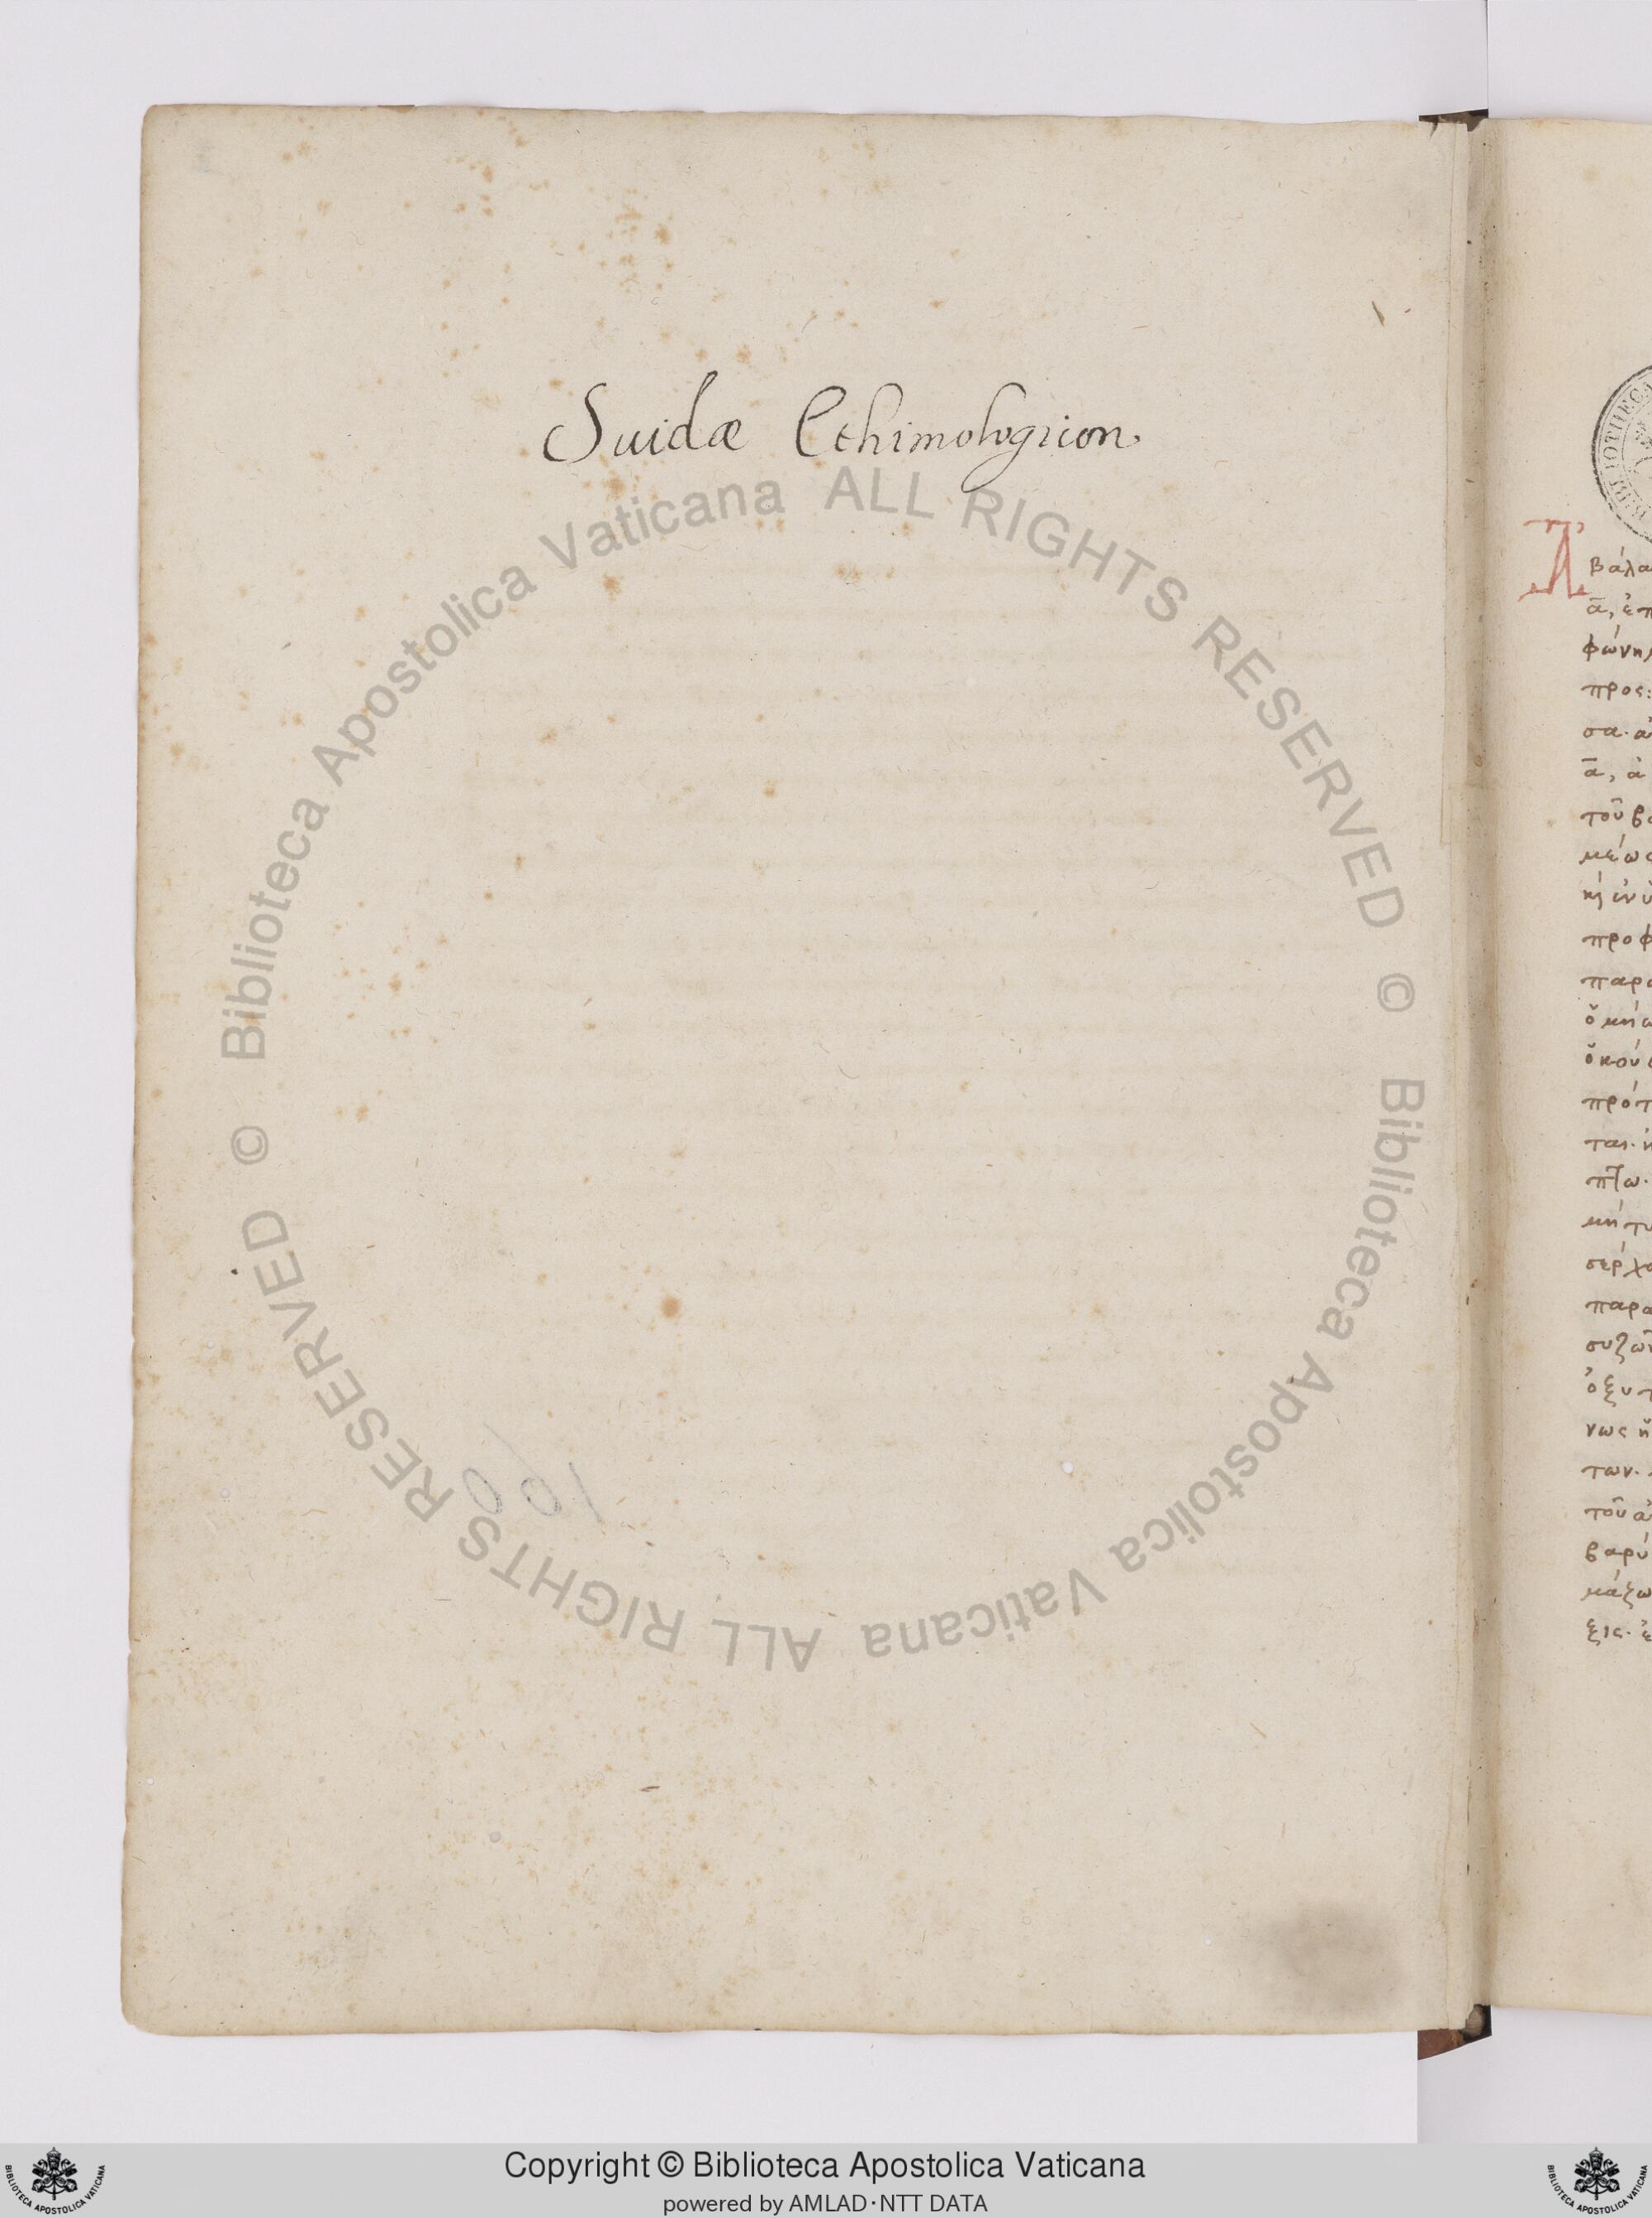 Suidæ Ethimologicon
© Biblioteca Apostolica Vaticana ALL RIGHTS RESERVED
© Biblioteca Apostolica Vaticana ALL RIGHTS RESERVED
100
BIBLIOTHECA
Α
βάλα
ᾱ, ἐπ
φώνη
προς:
σα· ἀ
ᾱ, ἀ
τοῦ β
προφ
παρα
πρότ
παρα
συζω
ὀξυτ
νως ἢ
των·
τοῦ ἀ
βαρύ
μάξω
ξις· ἐ
Copyright © Biblioteca Apostolica Vaticana
powered by AMLAD·NTT DATA
BIBLIOTECA APOSTOLICA VATICANA
BIBLIOTECA APOSTOLICA VATICANA